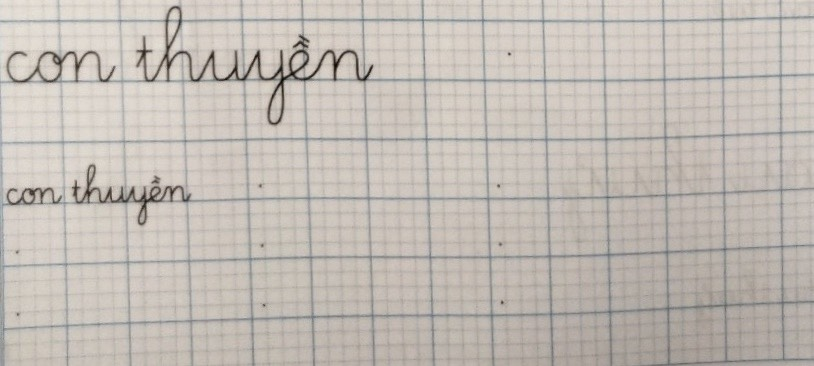 con thuyền
con thuyền